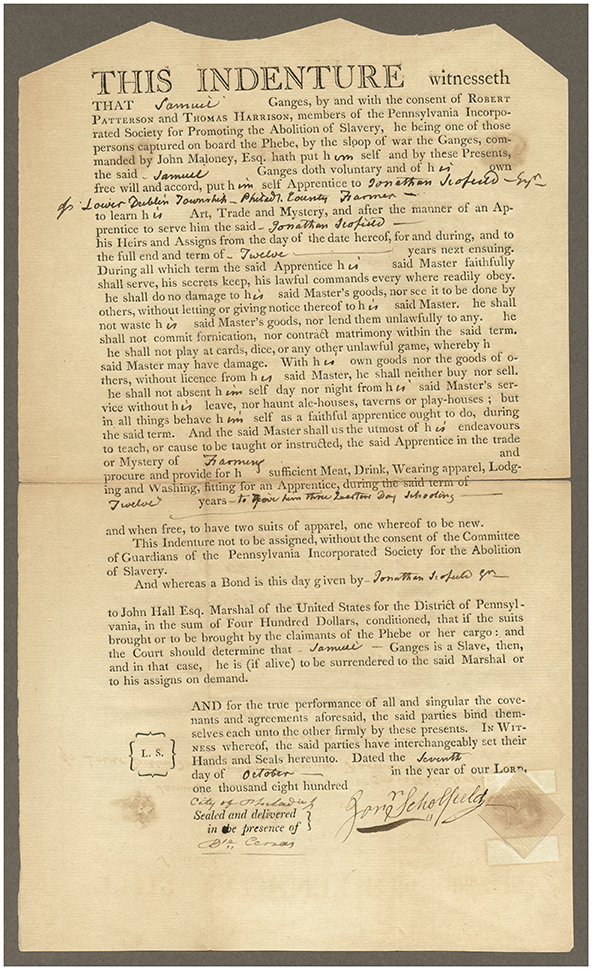 THIS INDENTURE witnesseth
THAT Samuel Ganges, by and with the consent of ROBERT
PATTERSON and THOMAS HARRISON, members of the Pennsylvania Incorpo-
rated Society for Promoting the Abolition of Slavery, he being one of those
persons captured on board the Phebe, by the sloop of war the Ganges, com-
manded by John Maloney, Esq. hath put him self and by these Presents,
the said Samuel Ganges doth voluntary and of his own
free will and accord, put him self Apprentice to Jonathan Scofield
of Lower Dublin Township Philad. County Farmer
to learn his Art, Trade and Mystery, and after the manner of an Ap-
prentice to serve him the said Jonathan Scofield
his Heirs and Assigns from the day of the date hereof, for and during, and to
the full end and term of Twelve years next ensuing.
During all which term the said Apprentice his said Master faithfully
shall serve, his secrets keep, his lawful commands every where readily obey.
he shall do no damage to his said Master's goods, nor see it to be done by
others, without letting or giving notice thereof to his said Master. he shall
not waste his said Master's goods, nor lend them unlawfully to any. he
shall not commit fornication, nor contract matrimony within the said term.
he shall not play at cards, dice, or any other unlawful game, whereby h
said Master may have damage. With his own goods nor the goods of o-
thers, without licence from his said Master, he shall neither buy nor sell.
he shall not absent him self day nor night from his said Master's ser-
vice without his leave, nor haunt ale-houses, taverns or play-houses; but
in all things behave him self as a faithful apprentice ought to do, during
the said term. And the said Master shall us the utmost of his endeavours
to teach, or cause to be taught or instructed, the said Apprentice in the trade
or Mystery of Farming and
procure and provide for h sufficient Meat, Drink, Wearing apparel, Lodg-
ing and Washing, fitting for an Apprentice, during the said term of
Twelve years - to give him three Quarters Day Schooling
and when free, to have two suits of apparel, one whereof to be new.
This Indenture not to be assigned, without the consent of the Committee
of Guardians of the Pennsylvania Incorporated Society for the Abolition
of Slavery.
And whereas a Bond is this day given by Jonathan Scofield
to John Hall Esq. Marshal of the United States for the District of Pennsyl-
vania, in the sum of Four Hundred Dollars, conditioned, that if the suits
brought or to be brought by the claimants of the Phebe or her cargo: and
the Court should determine that Samuel Ganges is a Slave, then,
and in that case, he is (if alive) to be surrendered to the said Marshal or
to his assigns on demand.
AND for the true performance of all and singular the cove-
nants and agreements aforesaid, the said parties bind them-
selves each unto the other firmly by these presents. IN WIT-
NESS whereof, the said parties have interchangeably set their
Hands and Seals hereunto. Dated the Seventh
day of October in the year of our LORD,
one thousand eight hundred
L. S.
City of Philadel
Sealed and delivered
in the presence of
Schofield